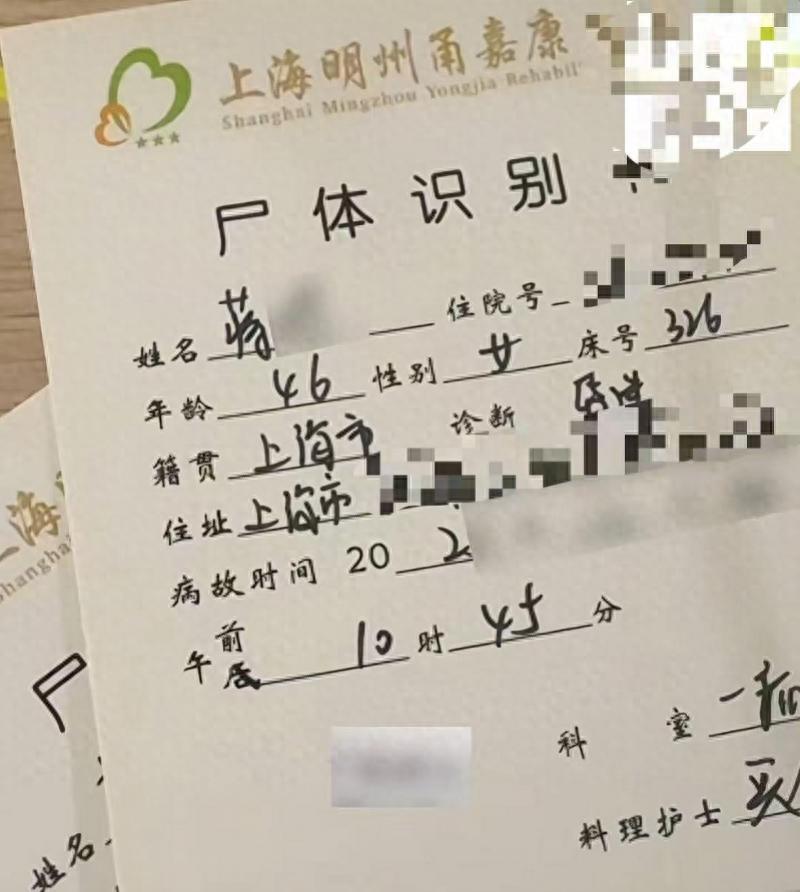 上海明州甬嘉康
Shanghai Mingzhou Yongjia Rehabil
尸体识别
姓名 蒋 住院号
年龄 46 性别 女 床号 326
籍贯 上海市 诊断
住址 上海市
病故时间 20 2
午 前 10 时 45 分
科室 一
料理护士
上海
Shangha
尸
姓名